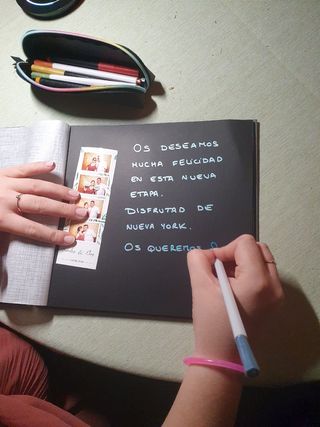 OS DESEAMOS
MUCHA FELICIDAD
EN ESTA NUEVA
ETAPA.
DISFRUTAD DE
NUEVA YORK.
OS QUEREMOS